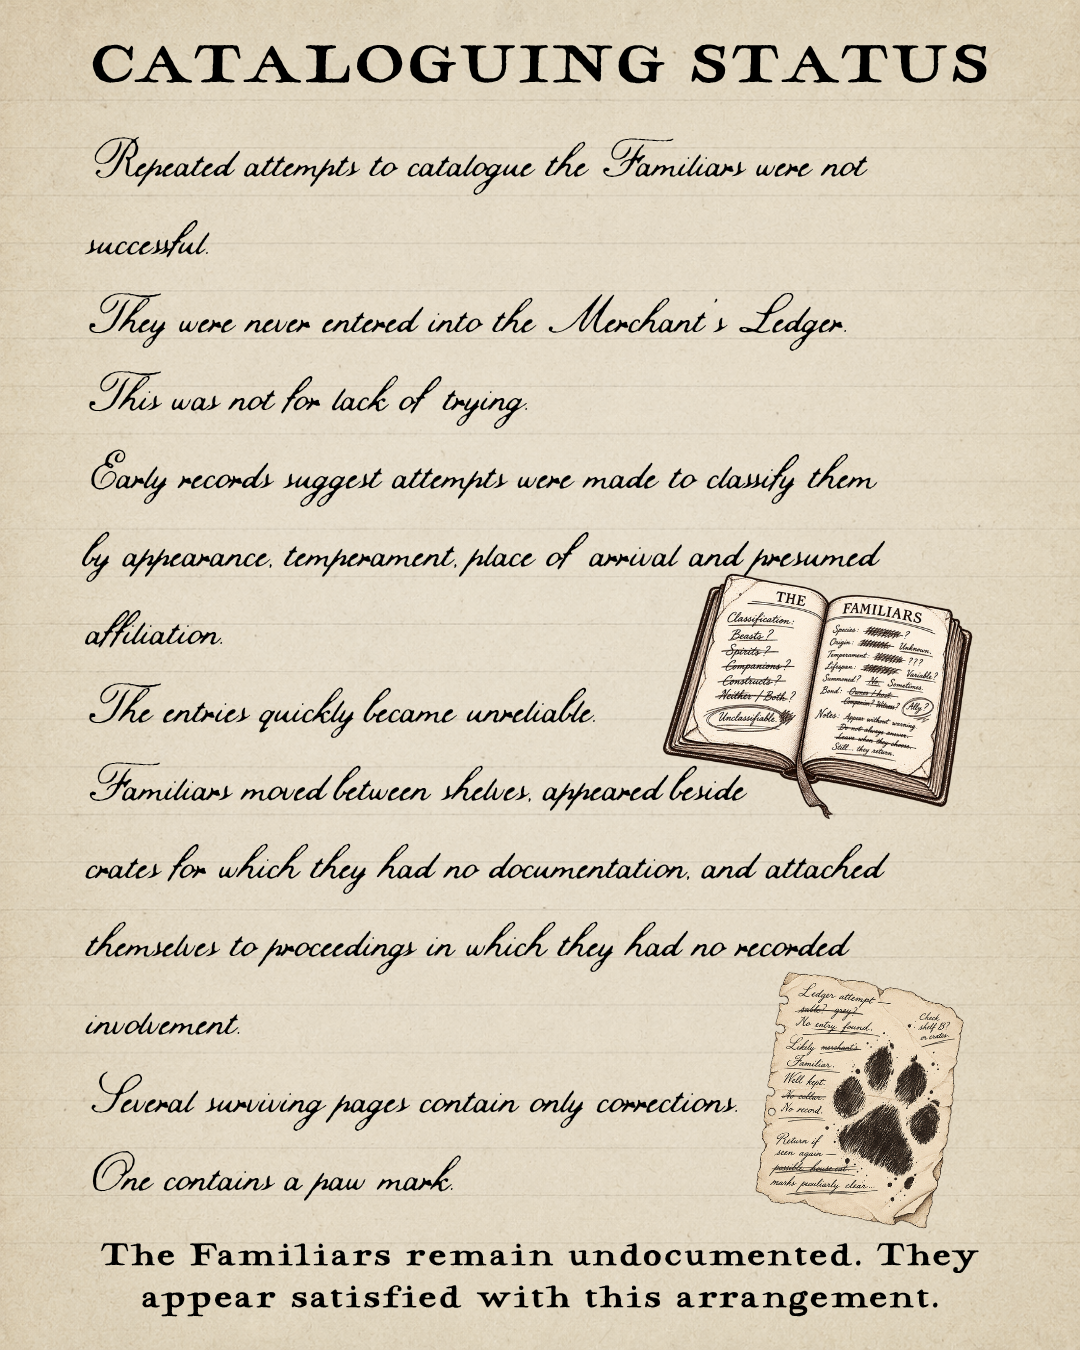 CATALOGUING STATUS
Repeated attempts to catalogue the Familiars were not
successful.
They were never entered into the Merchant's Ledger.
This was not for lack of trying.
Early records suggest attempts were made to classify them
by appearance, temperament, place of arrival and presumed
affiliation.
The entries quickly became unreliable.
Familiars moved between shelves, appeared beside
crates for which they had no documentation, and attached
themselves to proceedings in which they had no recorded
involvement.
Several surviving pages contain only corrections.
One contains a paw mark.
THE
Classification:
Beasts?
Spirits?
Companions?
Constructs?
Neither / Both?
Unclassifiable
FAMILIARS
Species: ?
Origin: Unknown.
Temperament: ???
Lifespan: Variable?
Summoned? No. Sometimes.
Bond: Owner / host
Companion? Witness? Ally?
Notes: Appear without warning.
Do not always answer.
Leave when they choose.
Still... they return.
Ledger attempt —
sable? grey?
No entry found.
Check
shelf B?
or crates.
Likely merchant's
Familiar.
Well kept.
No collar.
No record.
Return if
seen again —
possible house cat
marks peculiarly clear...
The Familiars remain undocumented. They
appear satisfied with this arrangement.